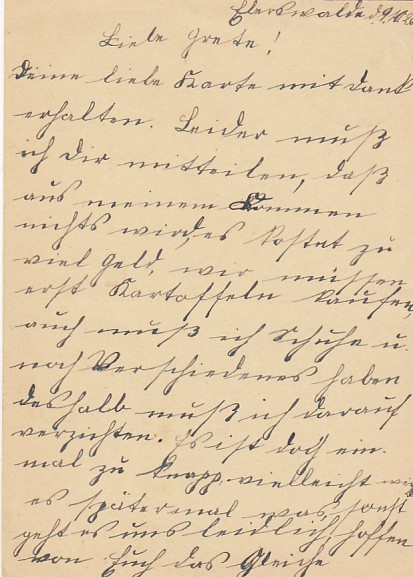 Eberswalde d. 9.10.26
Liebe Grete!
Deine liebe Karte mit Dank
erhalten. Leider muß
ich Dir mitteilen, daß
aus meinem Kommen
nichts wird, es kostet zu
viel Geld, wir müssen
erst Kartoffeln kaufen,
auch muß ich Schuhe u.
noch Verschiedenes haben
deshalb muß ich darauf
verzichten. Es ist doch ein
mal zu knapp, vielleicht wird
es später mal was, sonst
geht es uns leidlich, hoffen
von Euch das Gleiche